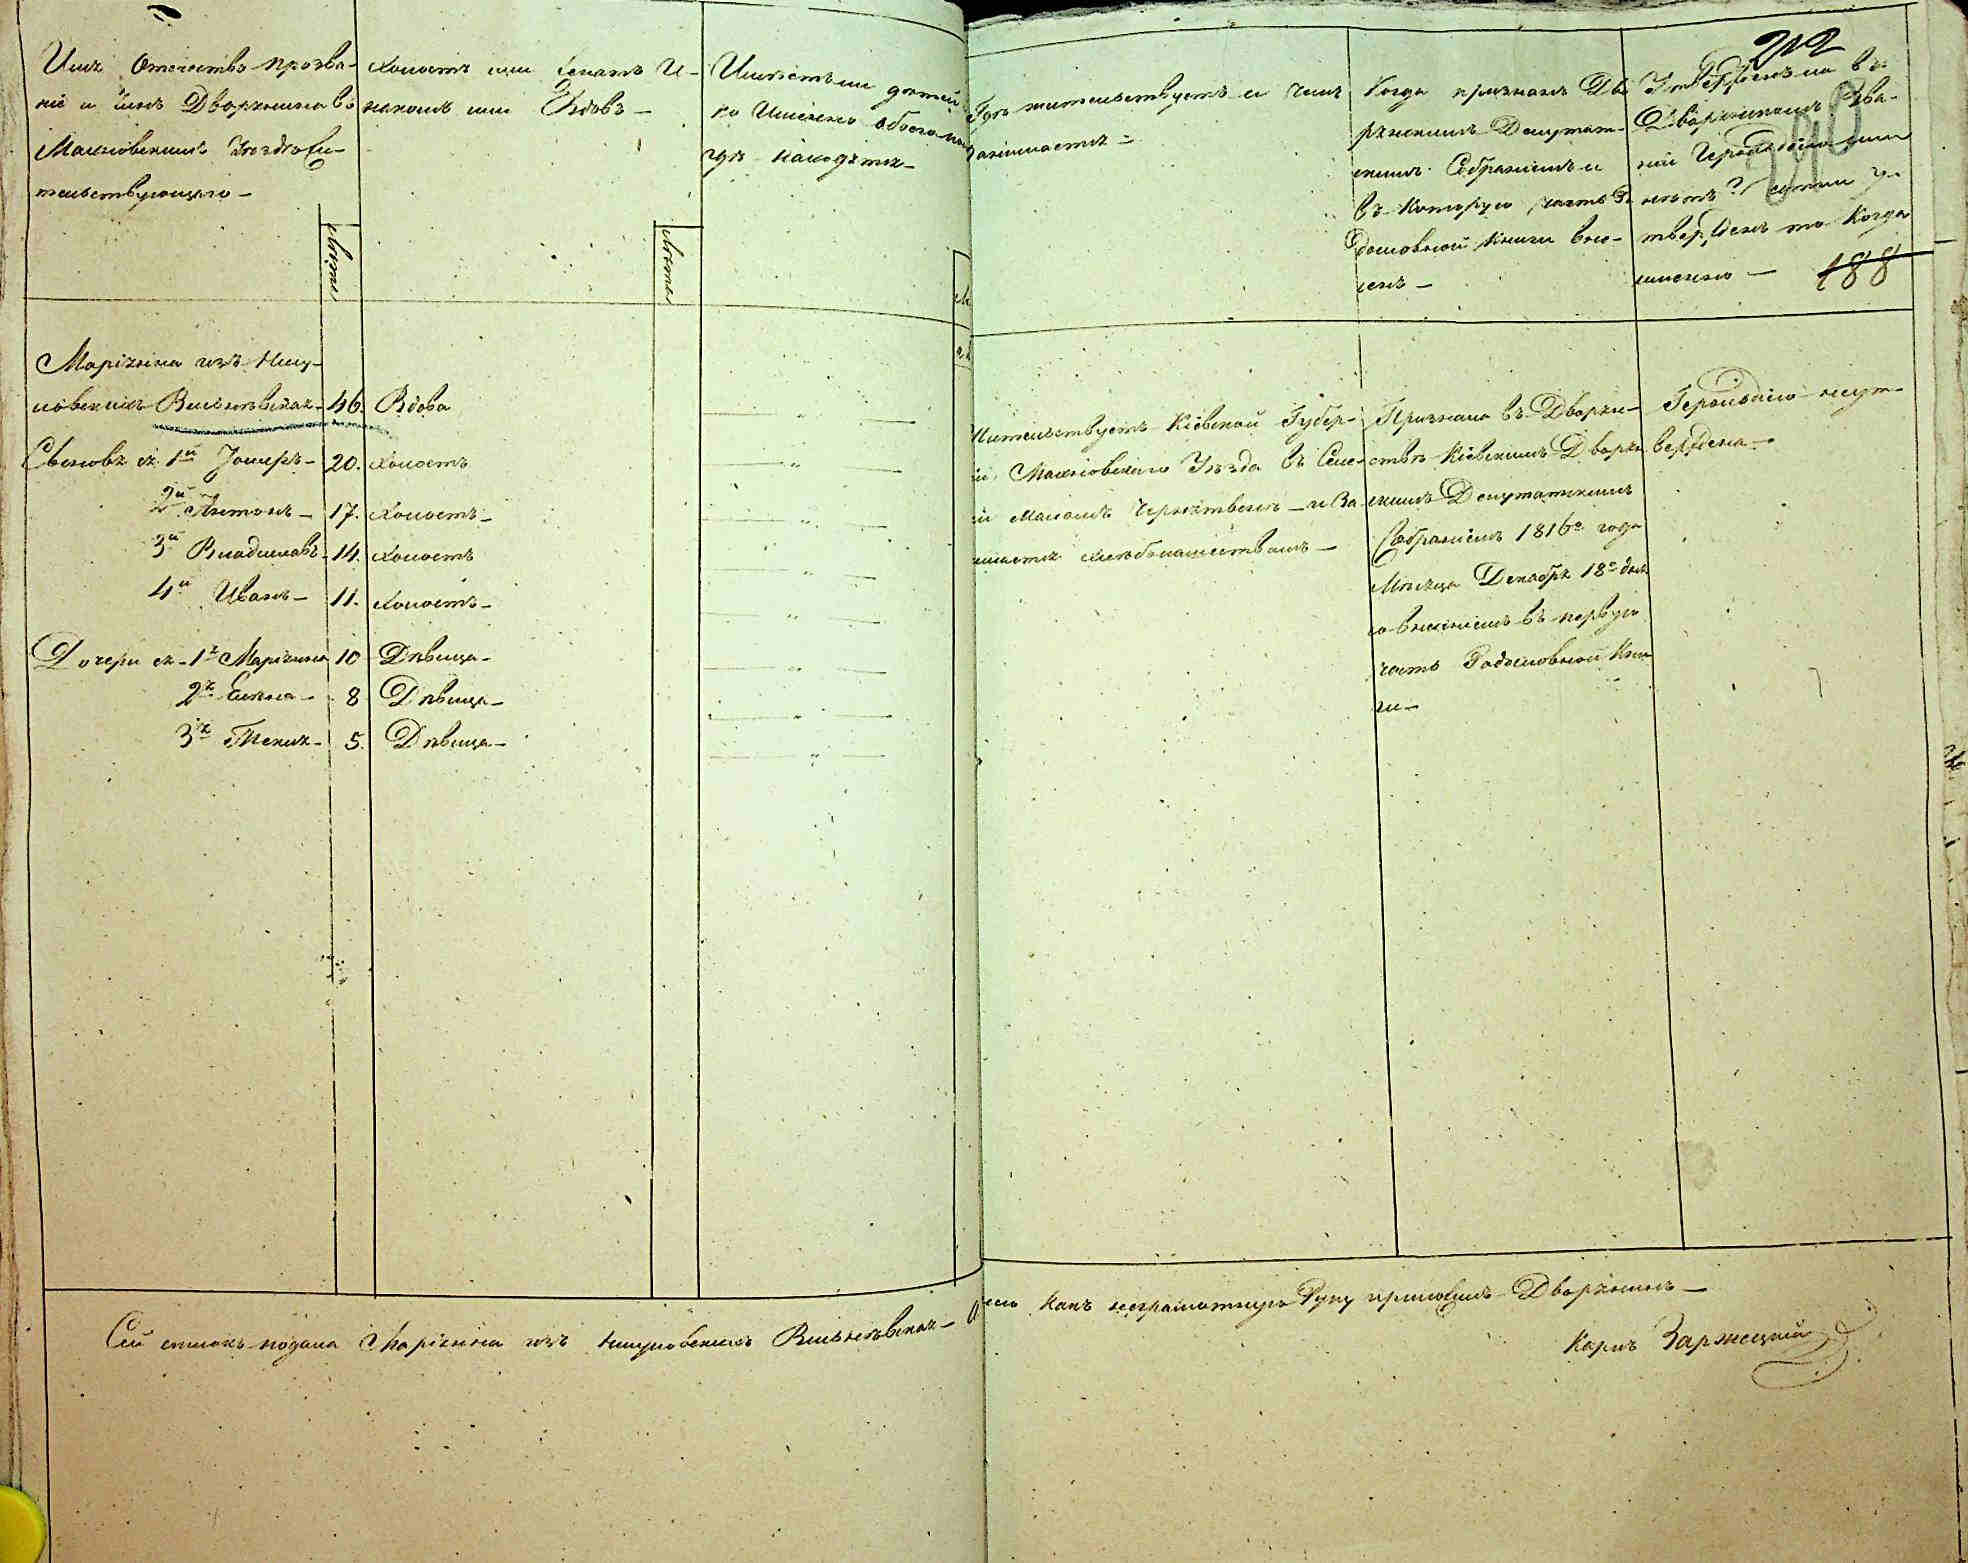 Имя отечество прозва-
ніе и чинъ Дворянина въ
Махновскомъ уездѣ жи-
тельствующаго
лѣта
холостъ или женатъ и-
накомъ или Вдовъ
лѣта
Имѣетъ ли детей
ко имянно обоего пола
где находятся
Гдѣ жительствуетъ и чимъ
занимается
Когда признанъ Дво
рянскимъ Депутат-
скимъ Собраніемъ и
въ которую часть Ро
дословной книги вне-
сенъ
212
Утвержденъ ли въ
Дворянскомъ Зва-
ніи Герольдіею или
нетъ? если у-
твержденъ то когда
имянно
240
188
Маріянна изъ
Вильневская 46. Вдова
Сыновья ея 1й Іосифъ 20. холостъ
2й Антонъ 17. холостъ
3й Владиславъ 14. холостъ
4й Иванъ 11. холостъ
Дочери ея 1я Маріянна 10 Дѣвица
2я Елена 8 Дѣвица
3я Текля 5. Дѣвица
Жительствуетъ Кіевской Губер-
ніи Махновского Уезда въ Селе-
ніи Маломъ и За
нимается хлебопашествомъ
Признана въ Дворян-
стве Кіевскимъ Дворян
скимъ Депутатскимъ
Собраніемъ 1816го года
Месяца Декабря 18го дня
со внесеніемъ въ первую
часть Родословной Кни
ги
Герольдіею неут-
верждена
Сей списокъ подала Маріянна изъ Вильневская а
нею какъ неграмотную Руку приложилъ Дворянинъ
Карлъ Заржецкій